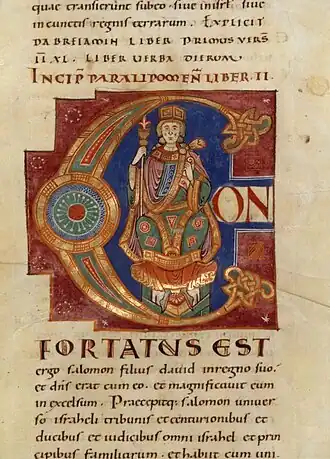 quae transierunt sub eo · siue in isrł · siue
in cunctis regnis terrarum . EXPLICIT
DABREIAMIN LIBER PRIMUS VERS̄
II XL · LIBER VERBA DIERUM
INCIP̄ PARALIPOMEN̄ LIBER · II ·
CON
FORTATUS EST
ergo salomon filius dauid in regno suo .
et dn̄s erat cum eo · et magnificauit eum
in excelsum . Praecepitq; salomon uniuer
so israheli tribunis et centurionibus et
ducibus et iudicibus omni israhel et prin
cipibus familiarum · et habiit cum uni